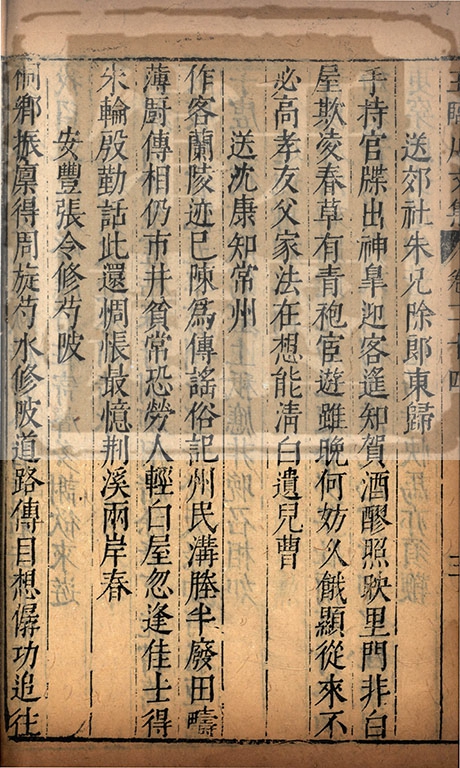 王臨川文集 卷二十四 三
送郊社朱兄除郎東歸
手持官牒出神臯迎客遙知賀酒醪照映里門非白
屋欺凌春草有青袍宦遊雖晚何妨久餓顯從來不
必高孝友父家法在想能清白遺兒曹
送沈康知常州
作客蘭陵迹已陳爲傳謠俗記州民溝塍半廢田疇
薄厨傳相仍市井貧常恐勞人輕白屋忽逢佳士得
朱輪殷勤話此還惆悵最憶荆溪兩岸春
安豐張令修芍陂
桐鄉振廩得周旋芍水修陂道路傳目想僝功追往